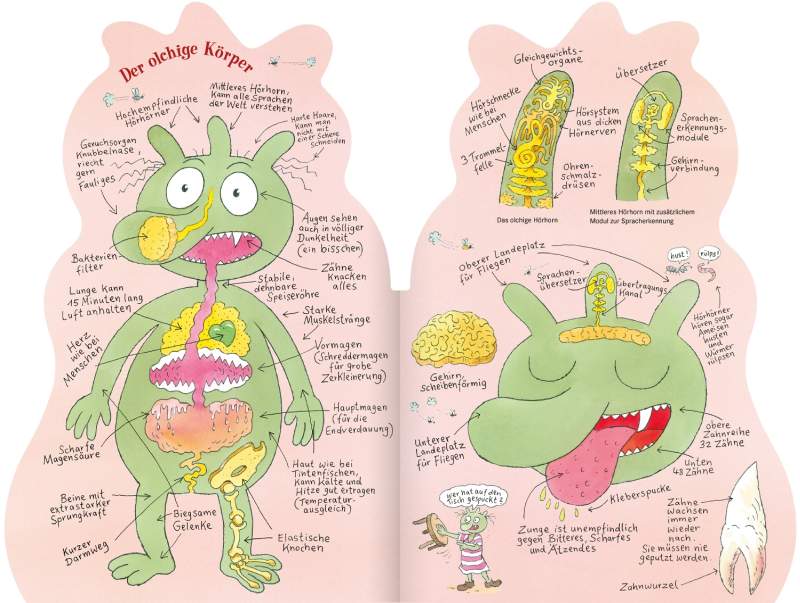 Der olchige Körper
Hochempfindliche
Hörhörner
Mittleres Hörhorn,
Kann alle Sprachen
der Welt verstehen
Harte Haare,
Kann man
nicht mit
einer Schere
schneiden
Geruchsorgan
Knubbelnase,
riecht
gern
Fauliges
Augen sehen
auch in völliger
Dunkelheit
(ein bisschen)
Bakterien-
filter
Zähne
Knacken
alles
Stabile,
dehnbare
Speiseröhre
Lunge Kann
15 Minuten lang
Luft anhalten
Starke
Muskelstränge
Herz,
wie bei
Menschen
Vormagen
(Schreddermagen
für grobe
Zerkleinerung)
Hauptmagen
(für die
Endverdauung)
Scharfe
Magensäure
Haut wie bei
Tintenfischen,
Kann Kälte und
Hitze gut ertragen
(Temperatur-
ausgleich)
Beine mit
extrastarker
Sprungkraft
Biegsame
Gelenke
Kurzer
Darmweg
Elastische
Knochen
Gleichgewichts-
organe
Hörschnecke
wie bei
Menschen
Hörsystem
aus dicken
Hörnerven
3 Trommel-
felle
Ohren-
schmalz-
drüsen
Das olchige Hörhorn
Übersetzer
Sprachen-
erkennungs-
module
Gehirn-
verbindung
Mittleres Hörhorn mit zusätzlichem
Modul zur Spracherkennung
Oberer Landeplatz
für Fliegen
Sprachen-
übersetzer
Übertragungs-
Kanal
hust!
rülps!
Hörhörner
hören sogar
Ameisen
husten
und
Würmer
rülpsen
Gehirn,
scheibenförmig
Unterer
Landeplatz
für Fliegen
obere
Zahnreihe
32 Zähne
Unten
48 Zähne
Kleberspucke
Wer hat auf den
Tisch gespuckt?
Zunge ist unempfindlich
gegen Bitteres, Scharfes
und Ätzendes
Zähne
wachsen
immer
wieder
nach.
Sie müssen nie
geputzt werden.
Zahnwurzel